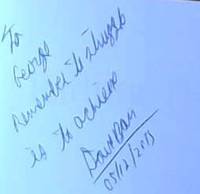 To
George
Remember to struggle
is to achieve
05/12/2013